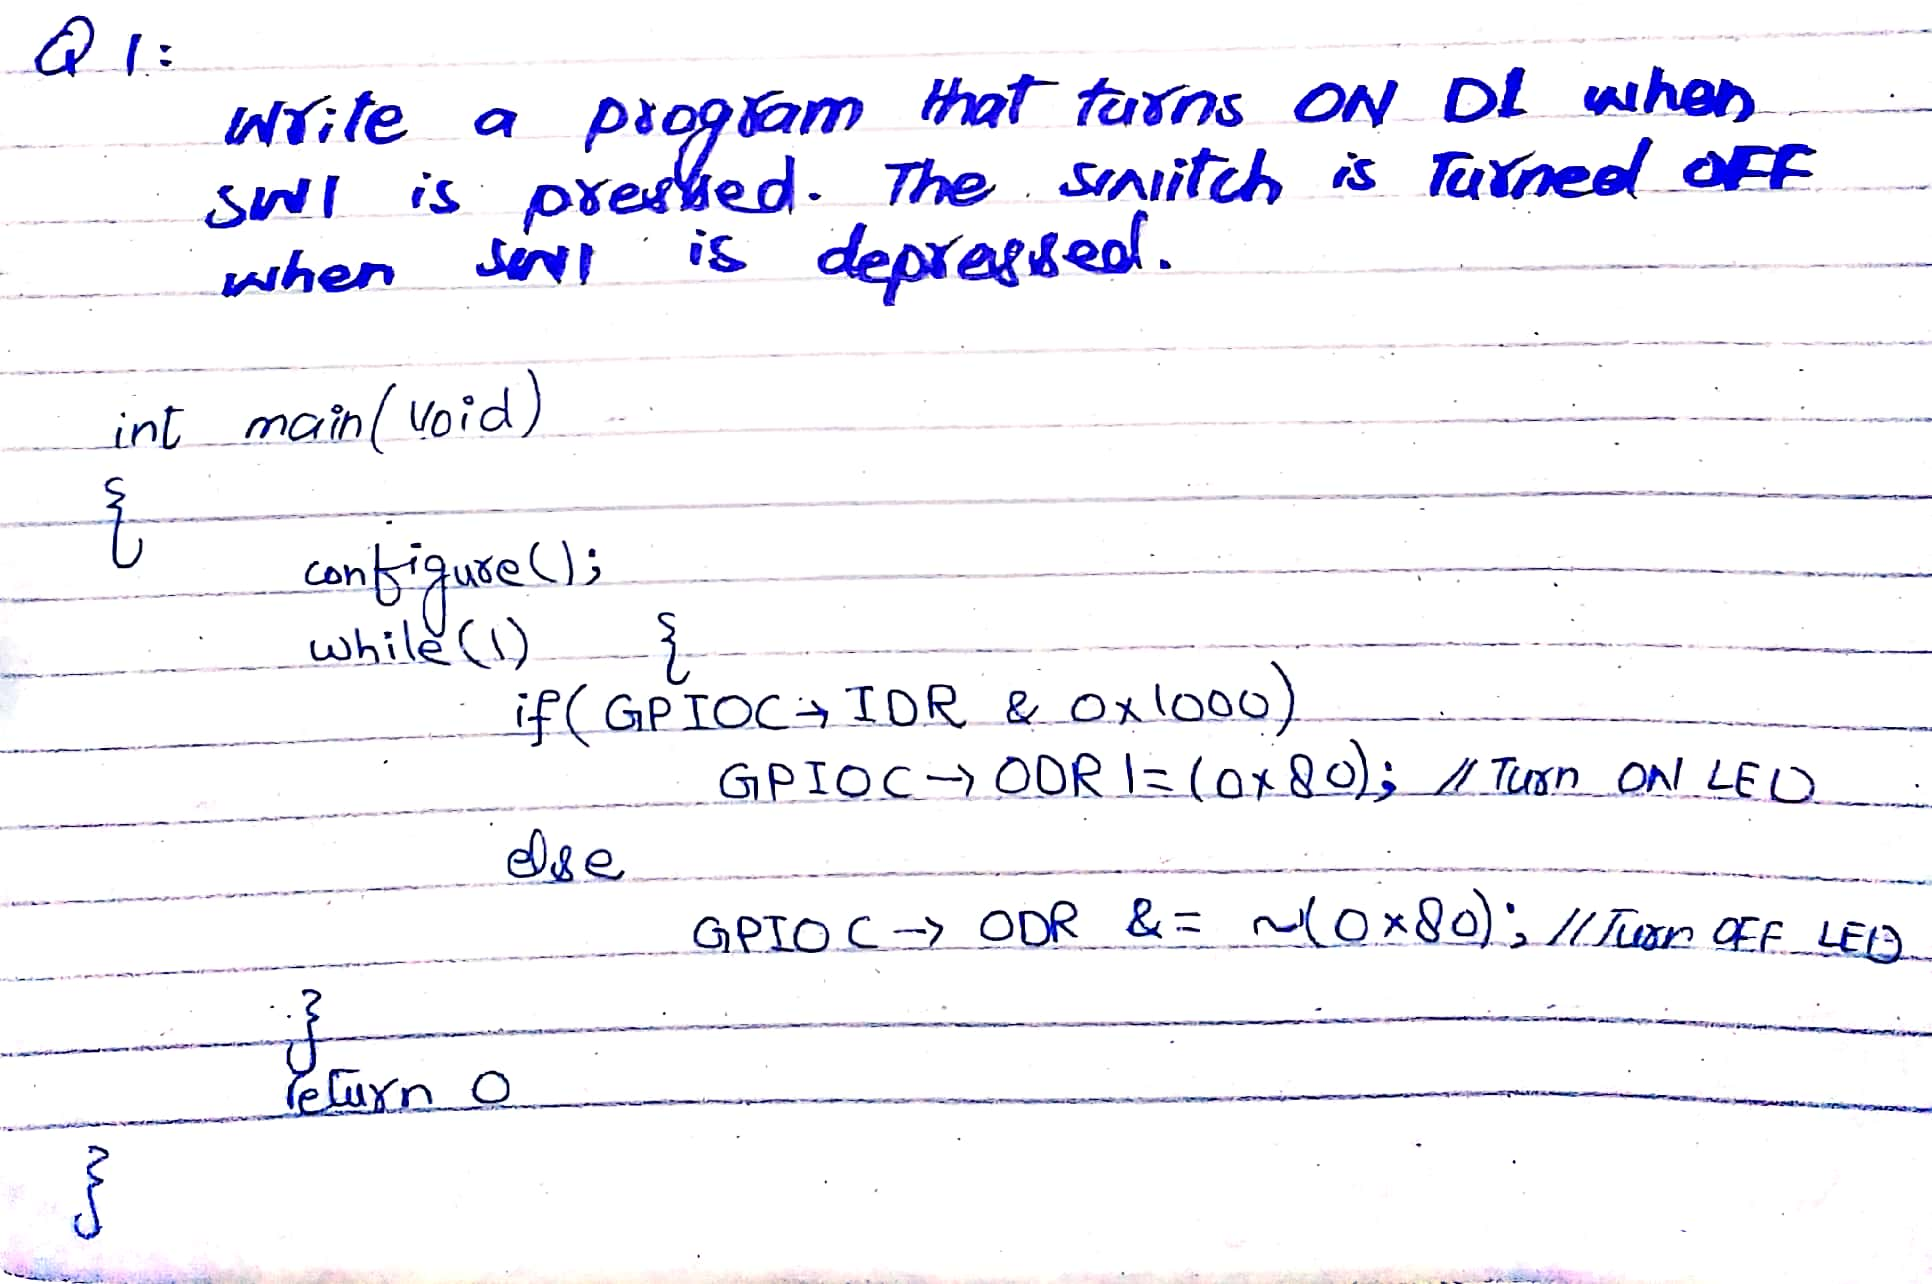 Q 1:
Write a program that turns ON D1 when
SW1 is pressed. The switch is Turned OFF
when SW1 is depressed.
int main(void)
{
configure();
while(1) {
if(GPIOC→IDR & 0x1000)
GPIOC→ODR |= (0x80); // Turn ON LED
else
GPIOC→ODR &= ~(0x80); // Turn OFF LED
}
return 0
}